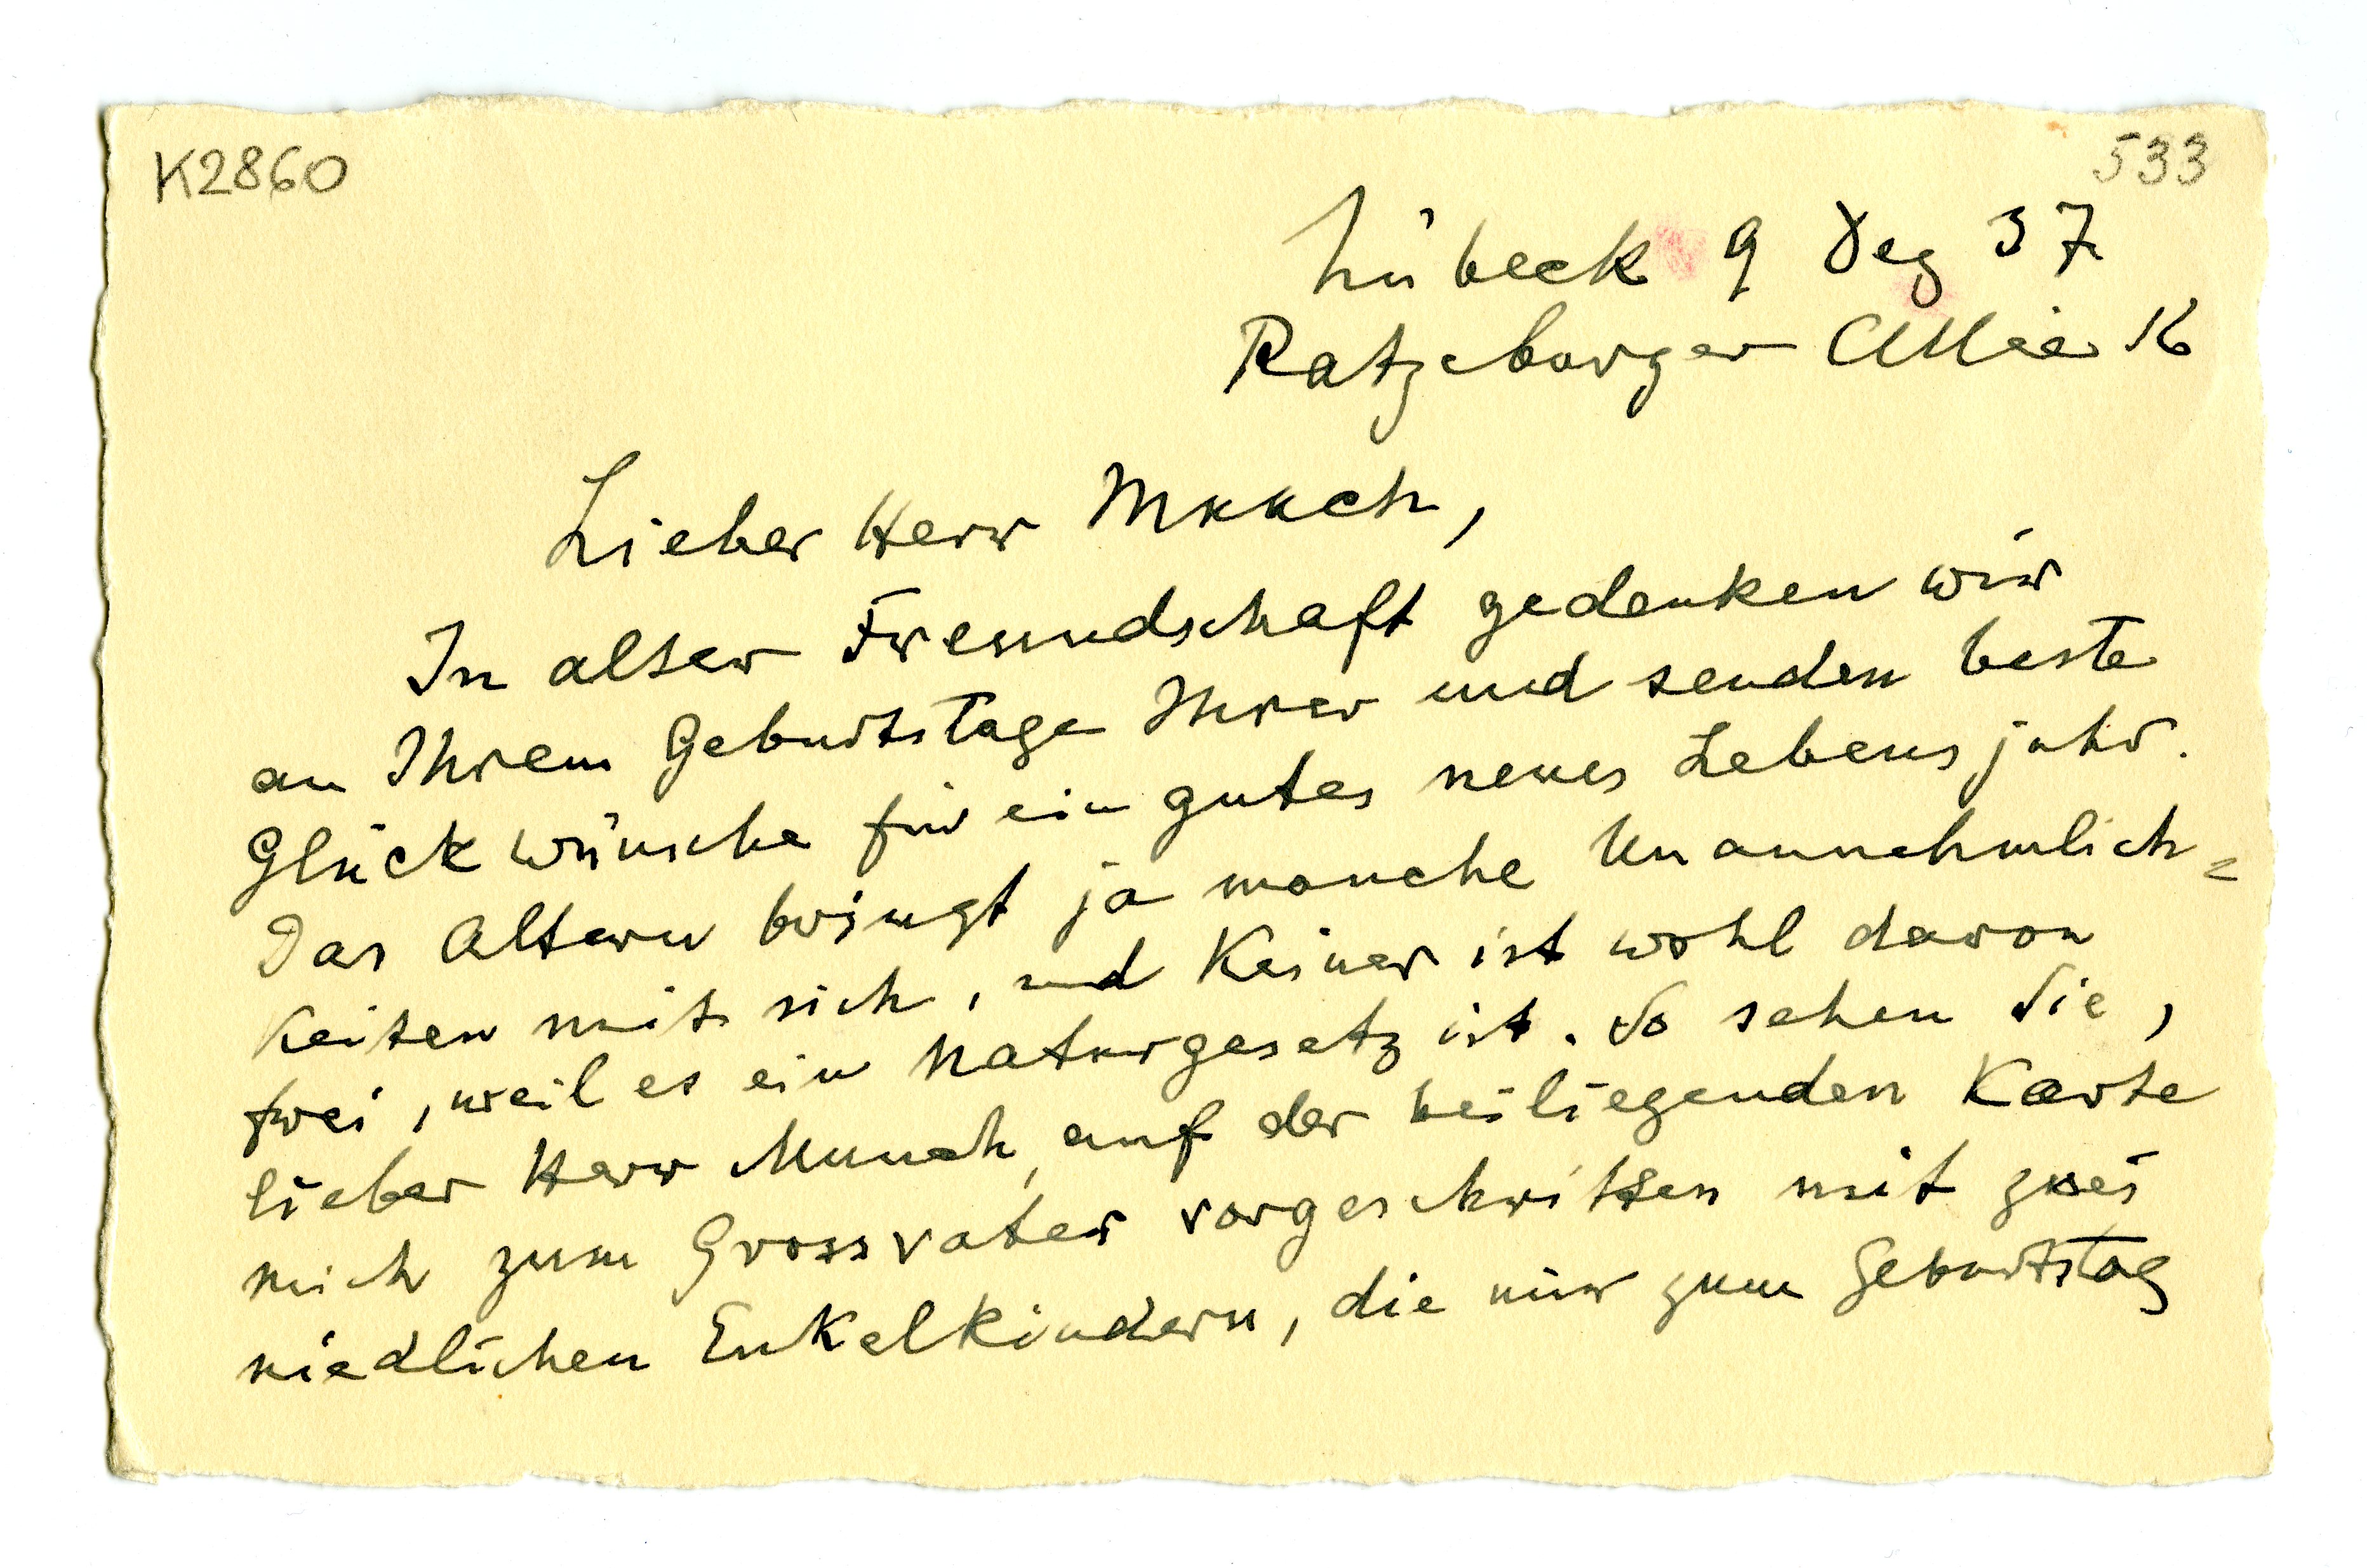 K2860
533
Lübeck 9 Dez 37
Ratzeburger Allee 16
Lieber Herr Munch,
In alter Freundschaft gedenken wir
an Ihrem Geburtstage Ihrer und senden beste
Glückwünsche für ein gutes neues Lebensjahr.
Das Altern bringt ja manche Unannehmlich=
keiten mit sich, und Keiner ist wohl davon
frei, weil es ein Naturgesetz ist. So sehen Sie,
lieber Herr Munch, auf der beiliegenden Karte
mich zum Grossvater vorgeschritten mit zwei
niedlichen Enkelkindern, die mir zum Geburtstag